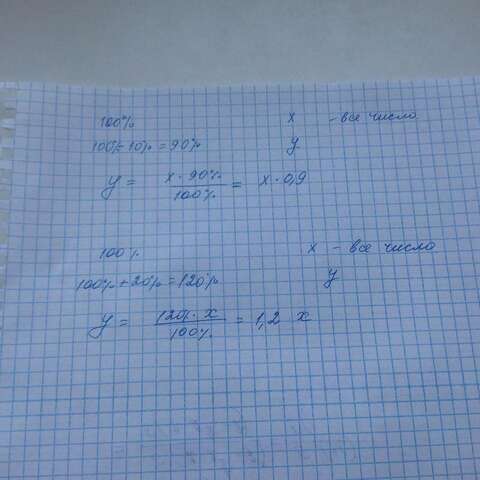 100% x - все число
100% - 10% = 90% y
y = x · 90% / 100% = x · 0,9
100% x - все число
100% + 20% = 120% y
y = 120% · x / 100% = 1,2 x